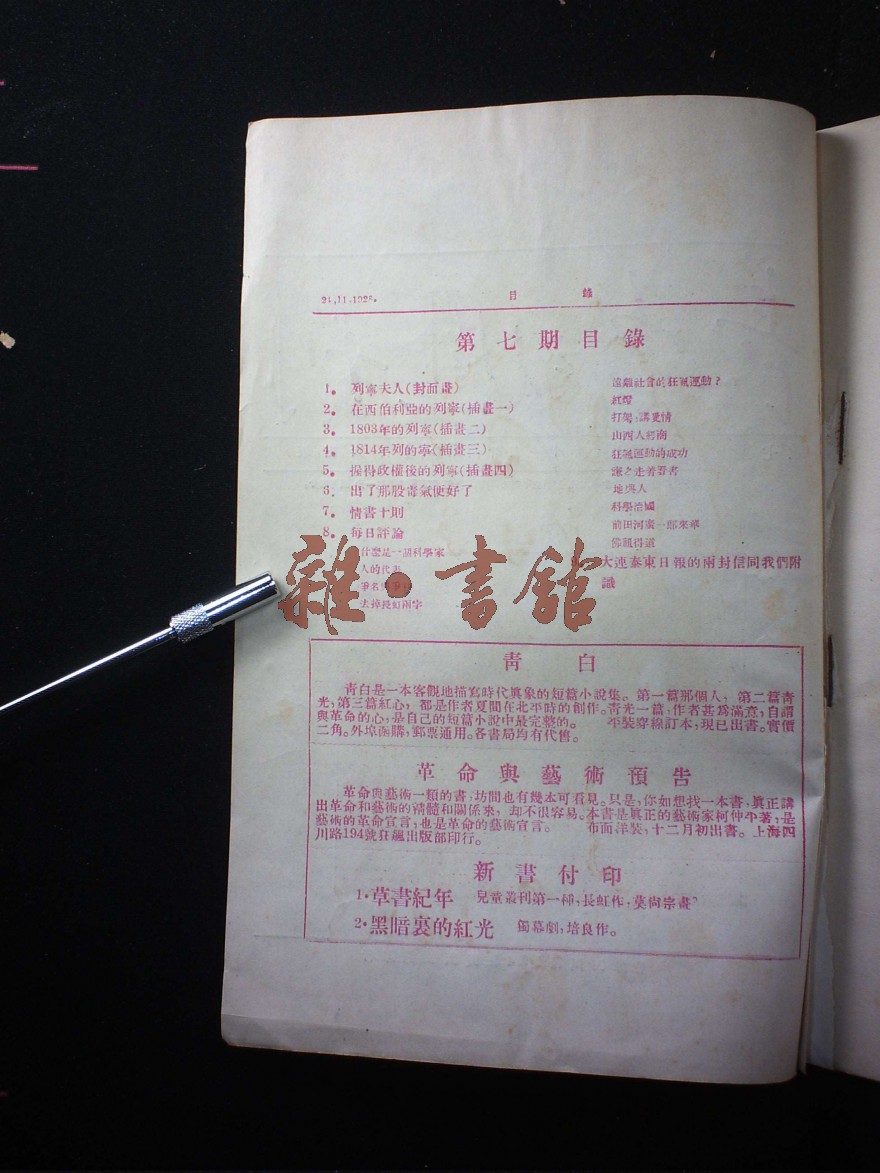 24.11.1928.
目錄
第七期目錄
1. 列寧夫人(封面畫)
2. 在西伯利亞的列寧(插畫一)
3. 1803年的列寧(插畫二)
4. 1814年列的寧(插畫三)
5. 操得政權後的列寧(插畫四)
6. 出了那股毒氣便好了
7. 情書十則
8. 每日評論
什麼是一個科學家
人的代表
去掉長虹兩字
遠離社會的狂飆運動?
打架,講愛情
山西人經商
狂飆運動的成功
地與人
科學治國
前田河廣一郎來華
佛祖得道
大連泰東日報的兩封信同我們附
識
青白
青白是一本客觀地描寫時代真象的短篇小說集。第一篇那個人,第二篇青
光,第三篇紅心,都是作者夏間在北平時的創作。青光一篇,作者甚爲滿意,自謂
與革命的心,是自己的短篇小說中最完整的。 平裝穿線訂本,現已出書。實價
二角。外埠函購,郵票通用。各書局均有代售。
革命與藝術預告
革命與藝術一類的書,坊間也有幾本可看見。只是,你如想找一本書,真正講
出革命和藝術的精髓和關係來,却不很容易。本書是真正的藝術家柯仲平著,是
藝術的革命宣言,也是革命的藝術宣言。 布面洋裝,十二月初出書。上海四
川路194號狂飆出版部印行。
新書付印
1.草書紀年 兒童叢刊第一種,長虹作,莫尚宗畫。
2.黑暗裏的紅光 獨幕劇,培良作。
雜·書館